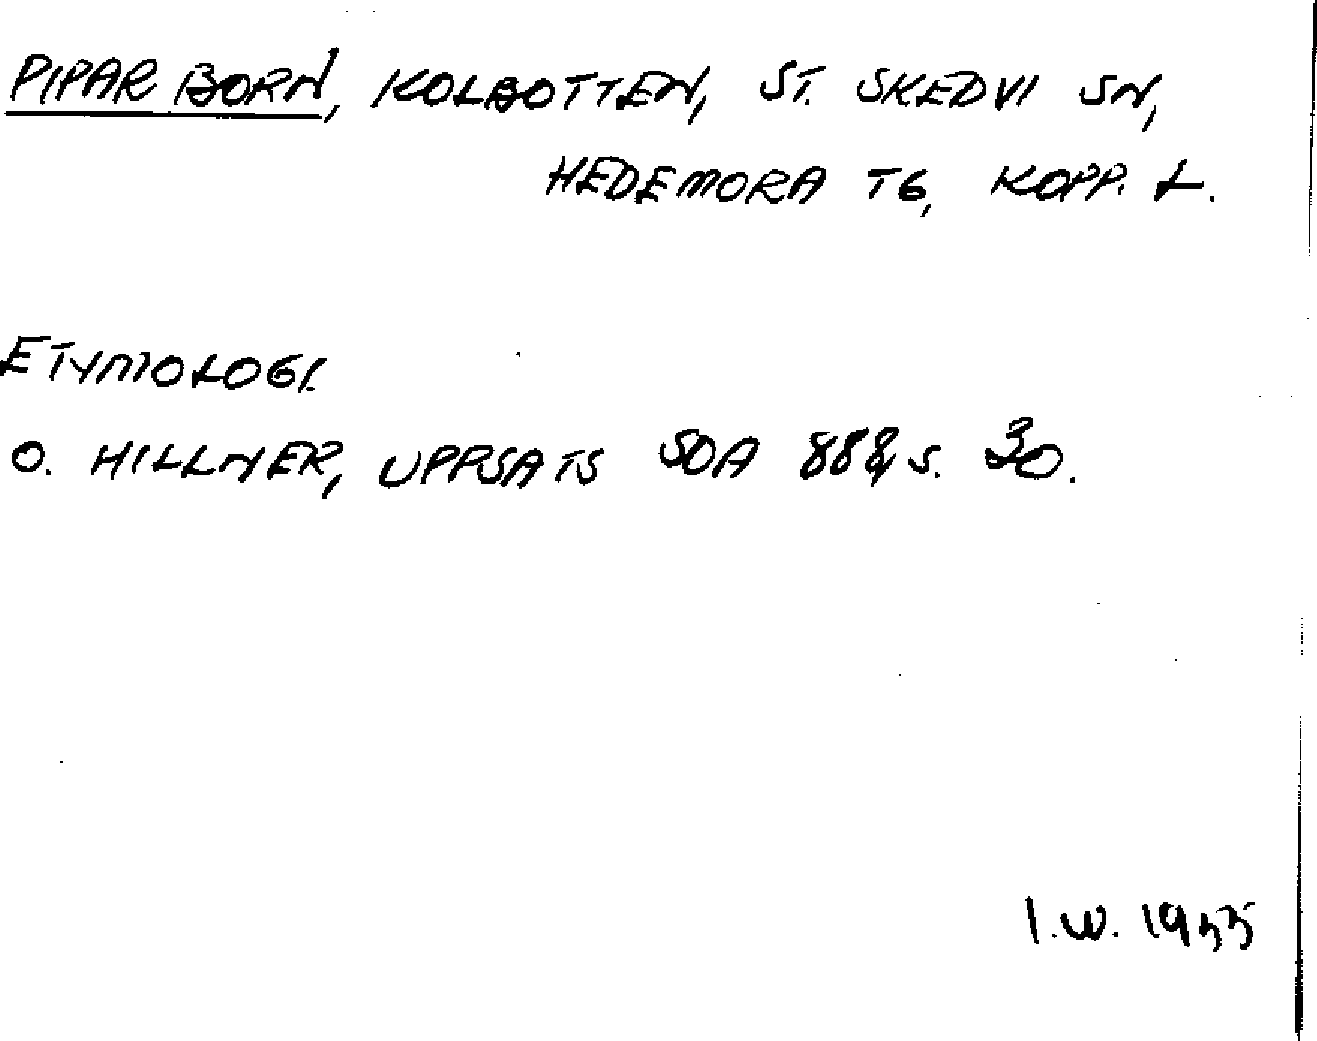 PIPAR BORN, KOLBOTTEN, ST. SKEDVI SN,
HEDEMORA TG, KOPP. L.
ETYMOLOGI.
O. HILLNER, UPPSATS SOA 888, s. 30.
I.W. 1955